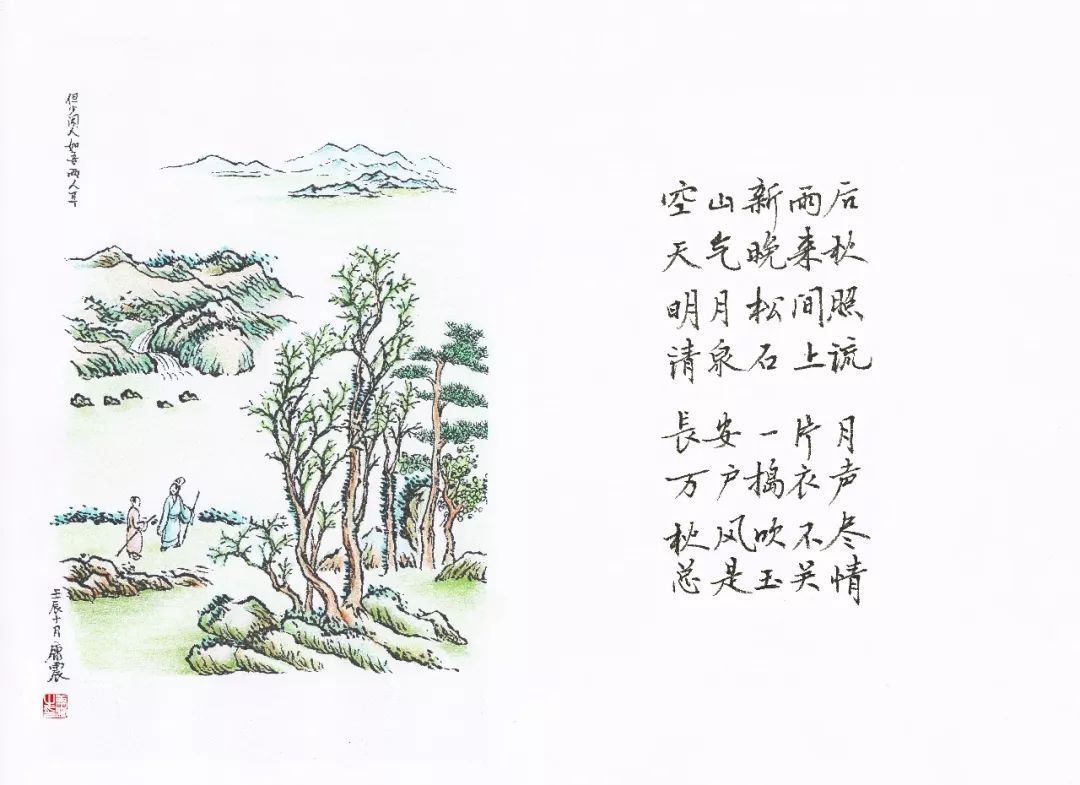 但少闲人如吾两人耳
壬辰十月 康震
空山新雨后
天气晚来秋
明月松间照
清泉石上流
長安一片月
万户捣衣声
秋风吹不尽
总是玉关情